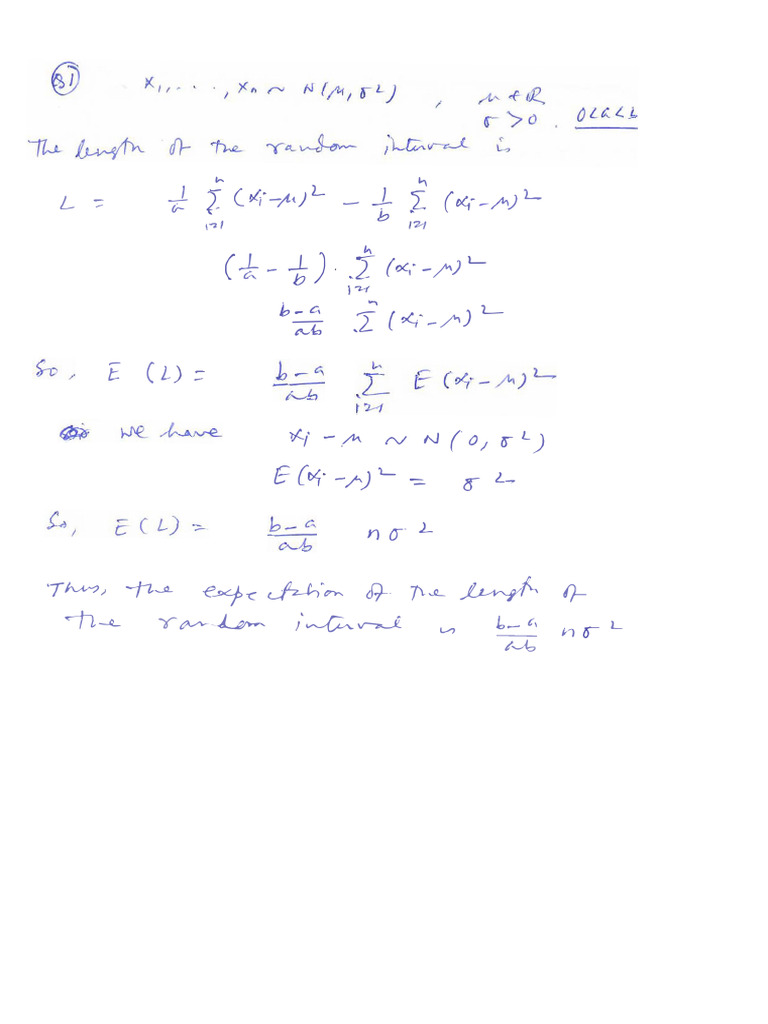 Q1 X1, . . . , Xn ~ N(μ, σ²) , μ ∈ ℝ
σ > 0 . 0<a<b
The length of the random interval is
L = 1/a Σ_{i=1}^{n} (xi-μ)² - 1/b Σ_{i=1}^{n} (xi-μ)²
(1/a - 1/b) . Σ_{i=1}^{n} (xi-μ)²
b-a/ab Σ^{n} (xi-μ)²
So, E (L) = b-a/ab Σ_{i=1}^{n} E (xi-μ)²
we have xi-μ ~ N(0, σ²)
E(xi-μ)² = σ²
So, E(L) = b-a/ab nσ²
Thus, the expectation of the length of
the random interval is b-a/ab nσ²